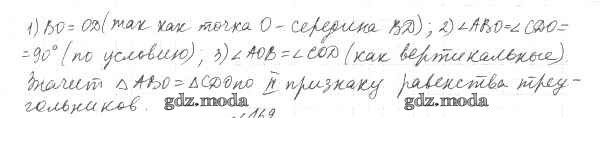 1) BO = OD (так как точка O - середина BD); 2) ∠ABO = ∠CDO =
= 90° (по условию); 3) ∠AOB = ∠COD (как вертикальные).
Значит △ABO = △CDO по II признаку равенства треу-
гольников.
gdz.moda gdz.moda